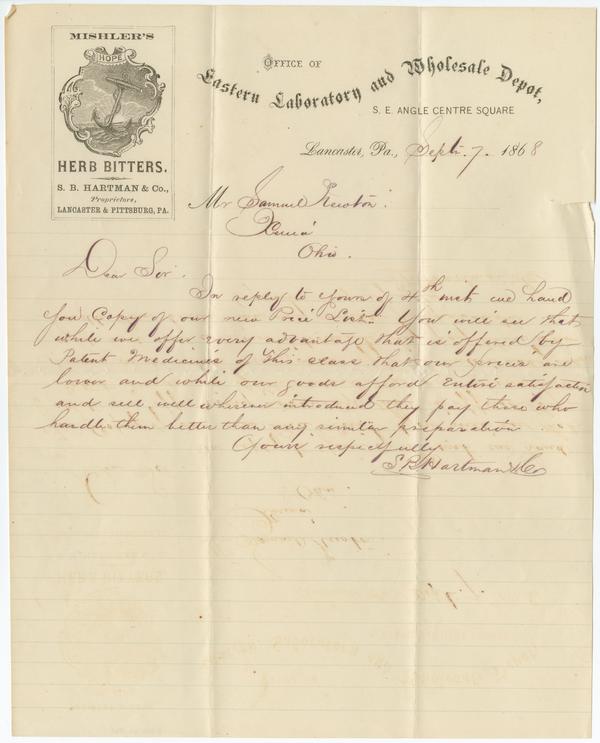 MISHLER'S
HOPE
HERB BITTERS.
S. B. HARTMAN & Co.,
Proprietors,
LANCASTER & PITTSBURG, PA.
OFFICE OF
Eastern Laboratory and Wholesale Depot,
S. E. ANGLE CENTRE SQUARE
Lancaster, Pa., Sept. 7. 1868
Mr Samuel Newton
Xenia
Ohio.
Dear Sir.
In reply to yours of 4th inst we hand
you Copy of our new Price List. You will see that
while we offer every advantage that is offered by
Patent Medicines of this class that our prices are
lower and while our goods afford Entire satisfaction
and sell well wherever introduced they pay those who
handle them better than any similar preparation
Yours respectfully
S. B. Hartman & Co